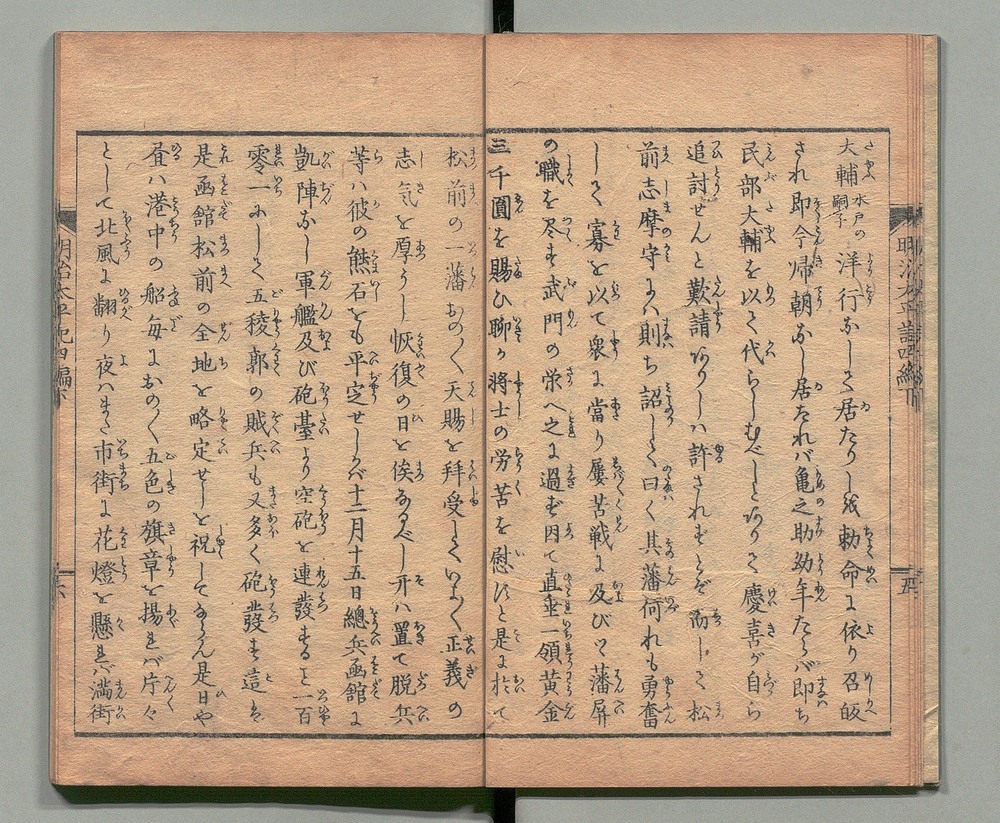 大輔水戸の嗣子洋行なして居たりしを勅命に依り召皈
され即今帰朝なし居たれバ亀之助幼年たらバ即ち
民部大輔を以て代らしむべしとありて慶喜が自ら
追討せんと歎請ありしハ許されずとぞ而して松
前志摩守にハ則ち詔して曰く其藩何れも勇奮
して寡を以て衆に當り屡苦戦に及びて藩屏
の職を尽す武門の栄へ之に過ず因て直垂一領黄金
三千圓を賜ひ聊か将士の労苦を慰すと是に於て
松前の一藩おのく天賜を拝受していよく正義の
志気を厚うし恢復の日を俟なるべし开ハ置て脱兵
等ハ彼の熊石をも平定せしかバ十二月十五日總兵函館に
凱陣なし軍艦及び砲臺より空砲を連發すると一百
零一にして五稜郭の賊兵も又多く砲發す這は
是函館松前の全地を略定せしを祝してならん是日や
昼ハ港中の船毎におのく五色の旗章を揚れバ片々
として北風に翻り夜ハまた市街に花燈を懸れバ満街
明治太平記四編下
五
明治太平記四編下
六